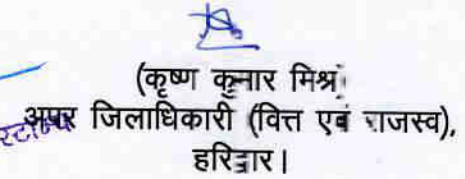 (कृष्ण कुमार मिश्र)
अपर जिलाधिकारी (वित्त एवं राजस्व),
हरिद्वार।